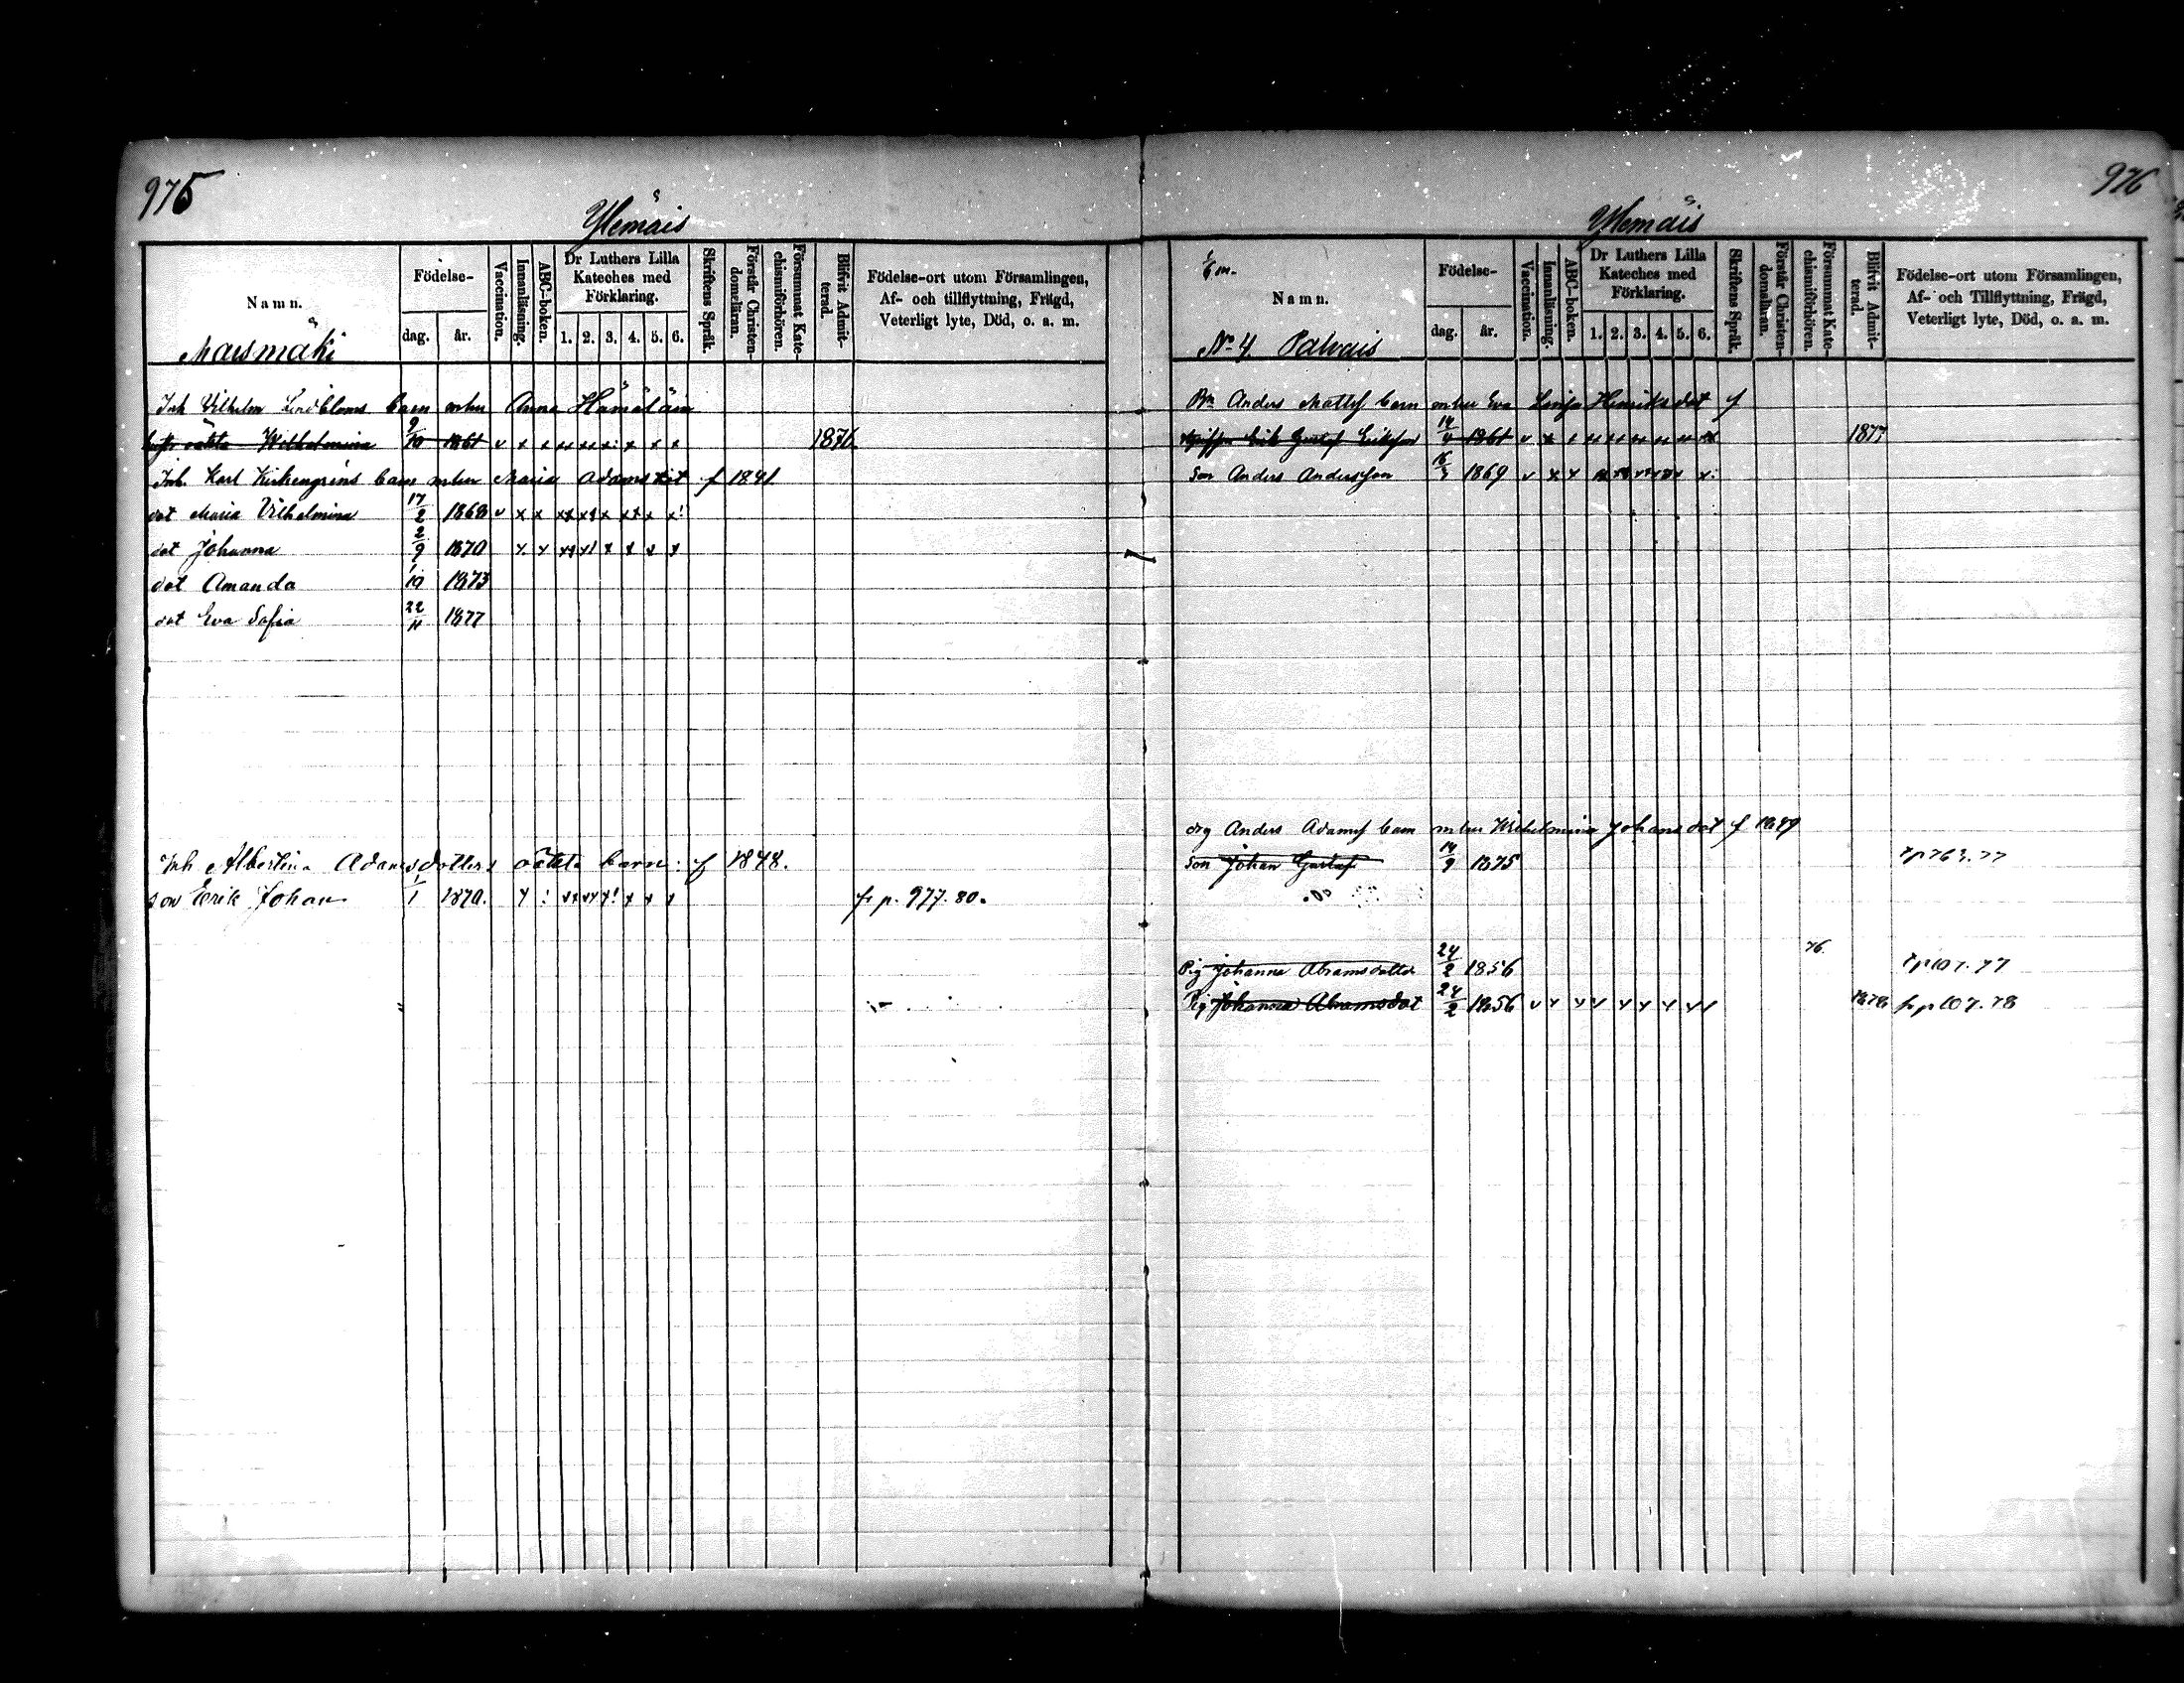 975
Ylemäis
Namn.
Födelse-
dag. år.
Vaccination.
Innanläsning.
ABC-boken.
Dr Luthers Lilla Kateches med Förklaring.
1. 2. 3. 4. 5. 6.
Skriftens Språk.
Förstår Christendomsläran.
Försummat Katechismiförhören.
Blifvit Admitterad.
Födelse-ort utom Församlingen, Af- och tillflyttning, Frägd, Veterligt lyte, Död, o. a. m.
Maismäki
Inh Vilhelm Lindbloms barn m hu Anna Hämäläin
oäkta Wilhelmina 9/10 1861 v x x x x x x x x 1876
Inh. Karl Kirkengrens barn m hu Maria Adamsdot f 1841
dot Maria Vilhelmina 17/2 1868 v x x xx xx x xx x x!
dot Johanna 2/9 1870 x x xx x! x x x x
dot Amanda 1/10 1873
dot Eva Sofia 22/11 1877
Inh Albertina Adamsdotters oäkta barn: f 1848.
son Erik Johan 1/1 1870. x : xx xx x! x x x fr p. 977. 80.
976
Ylemäis
Namn.
Födelse-
dag. år.
Vaccination.
Innanläsning.
ABC-boken.
Dr Luthers Lilla Kateches med Förklaring.
1. 2. 3. 4. 5. 6.
Skriftens Språk.
Förstår Christendomsläran.
Försummat Katechismiförhören.
Blifvit Admitterad.
Födelse-ort utom Församlingen, Af- och Tillflyttning, Frägd, Veterligt lyte, Död, o. a. m.
No 4. Palvais
Bn Anders Mattss barn m hu Eva Lovisa Henriksdot f
Erik Gustaf Eriksson 14/4 1861 v x x x x x x x x 1877
Son Anders Andersson 16/3 1869 v x x x x x x x x
drg Anders Adamss barn m hu Wilhelmina Johansdot f 1849
Son Johan Gustaf 14/9 1875 t p 763. 77
Pig Johanna Abramsdotter 24/2 1856 76. t p 107. 77
Pig Johanna Abramsdot 24/2 1856 v x x x x x x x x 1878 fr p 107. 78